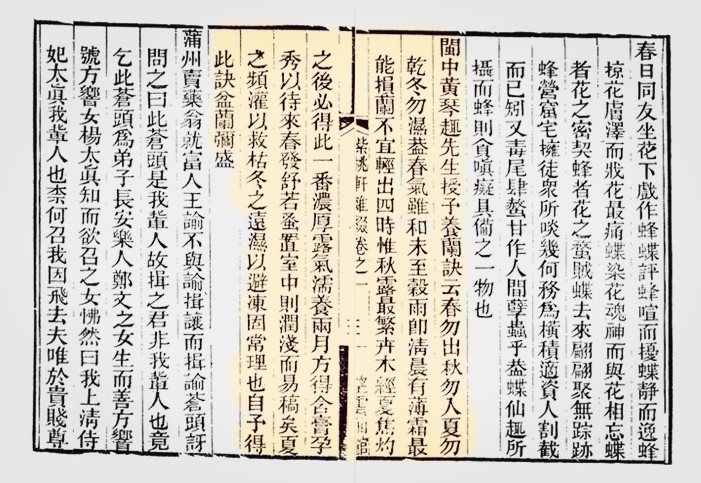 春日同友坐花下戲作蜂蝶評蜂喧而擾蝶静而逸蜂
掠花膚澤而戕花最痛蝶染花魂神而與花相忘蝶
者花之密契蜂者花之蝥賊蝶去來翩翩聚無踪跡
蜂營窟宅擁徒衆所啖幾何務爲橫積適資人割截
而已矧又毒尾肆螫甘作人間孽蟲乎葢蝶仙趣所
攝而蜂則貪嗔癡具備之一物也
閩中黃琴趣先生授予養蘭訣云春勿出秋勿入夏勿
乾冬勿濕葢春氣雖和未至穀雨卽淸晨有薄霜最
能損蘭不宜輕出四時惟秋露最繁卉木經夏焦灼
紫桃軒雜綴卷之一
之後必得此一番濃厚露氣濡養兩月方得含膏孕
秀以待來春發舒若蚤置室中則潤淺而易稿矣夏
之頻灌以救枯冬之遠濕以避凍固常理也自予得
此訣盆蘭彌盛
蒲州賣藥翁就富人王諭不與諭揖讓而揖諭蒼頭訝
問之曰此蒼頭是我輩人故揖之君非我輩人也竟
乞此蒼頭爲弟子長安樂人鄭文之女生而善方響
號方響女楊太眞知而欲召之女怫然曰我上淸侍
妃太眞我輩人也柰何召我因飛去夫唯於貴賤尊